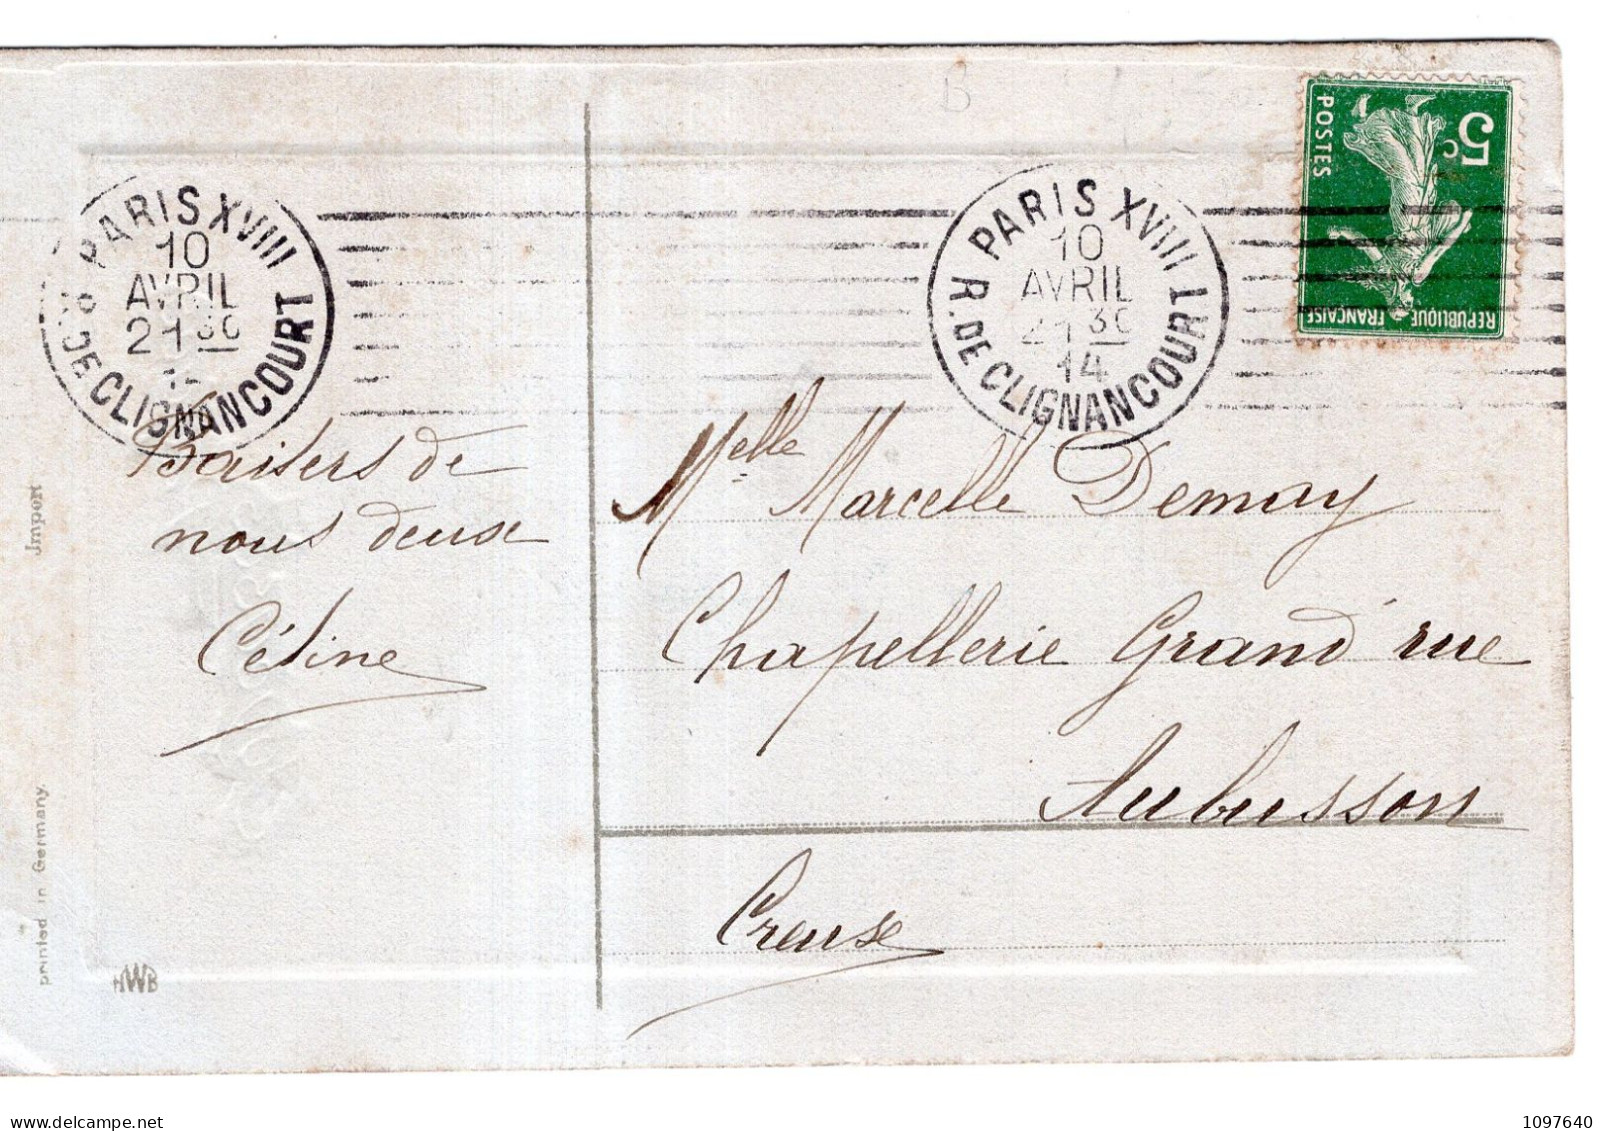 PARIS XVIII
10
AVRIL
21 30
R. DE CLIGNANCOURT
PARIS XVIII
10
AVRIL
21 30
14
R. DE CLIGNANCOURT
5c
POSTES
REPUBLIQUE FRANÇAISE
B
Baisers de
nous deux
Céline
Melle Marcelle Demay
Chapellerie Grand' rue
Aubusson
Creuse
Import
printed in Germany.
HWB
delcampe.net
1097640